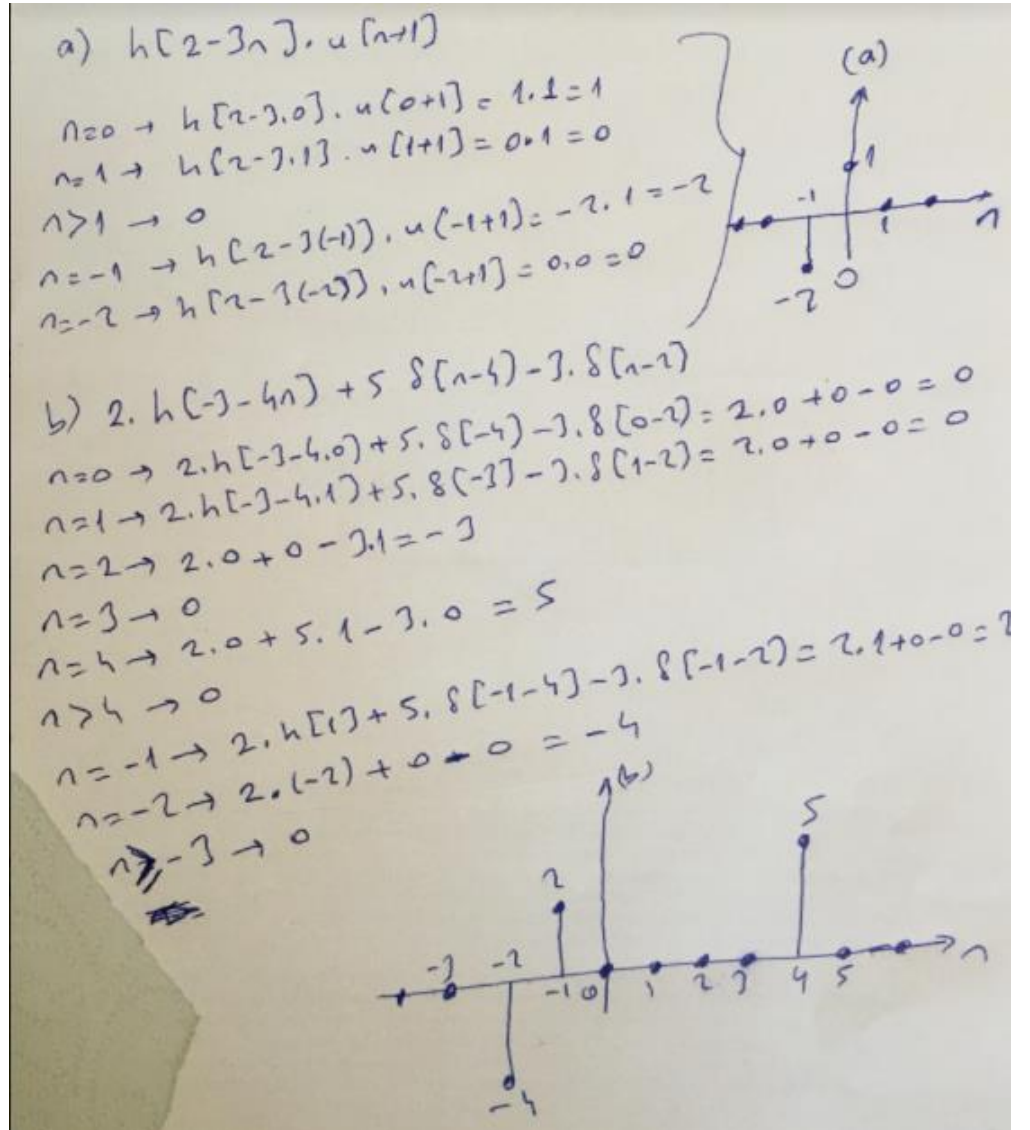 a) h[2-3n].u[n+1]
n=0 → h[2-3.0].u[0+1] = 1.1 = 1
n=1 → h[2-3.1].u[1+1] = 0.1 = 0
n>1 → 0
n=-1 → h[2-3(-1)].u(-1+1) = -2.1 = -2
n=-2 → h[2-3(-2)].u[-2+1] = 0.0 = 0
(a)
1
-1
1
n
-2
0
b) 2.h[-3-4n] + 5 δ[n-4) - 3.δ[n-2)
n=0 → 2.h[-3-4.0] + 5.δ[-4) - 3.δ[0-2) = 2.0 + 0 - 0 = 0
n=1 → 2.h[-3-4.1) + 5.δ(-3] - 3.δ[1-2) = 2.0 + 0 - 0 = 0
n=2 → 2.0 + 0 - 3.1 = -3
n=3 → 0
n=4 → 2.0 + 5.1 - 3.0 = 5
n>4 → 0
n=-1 → 2.h[1] + 5.δ[-1-4] - 3.δ[-1-2) = 2.1+0-0 = 2
n=-2 → 2.(-2) + 0 - 0 = -4
-3 → 0
(b)
5
2
-3 -2 -1 0 1 2 3 4 5 n
-4